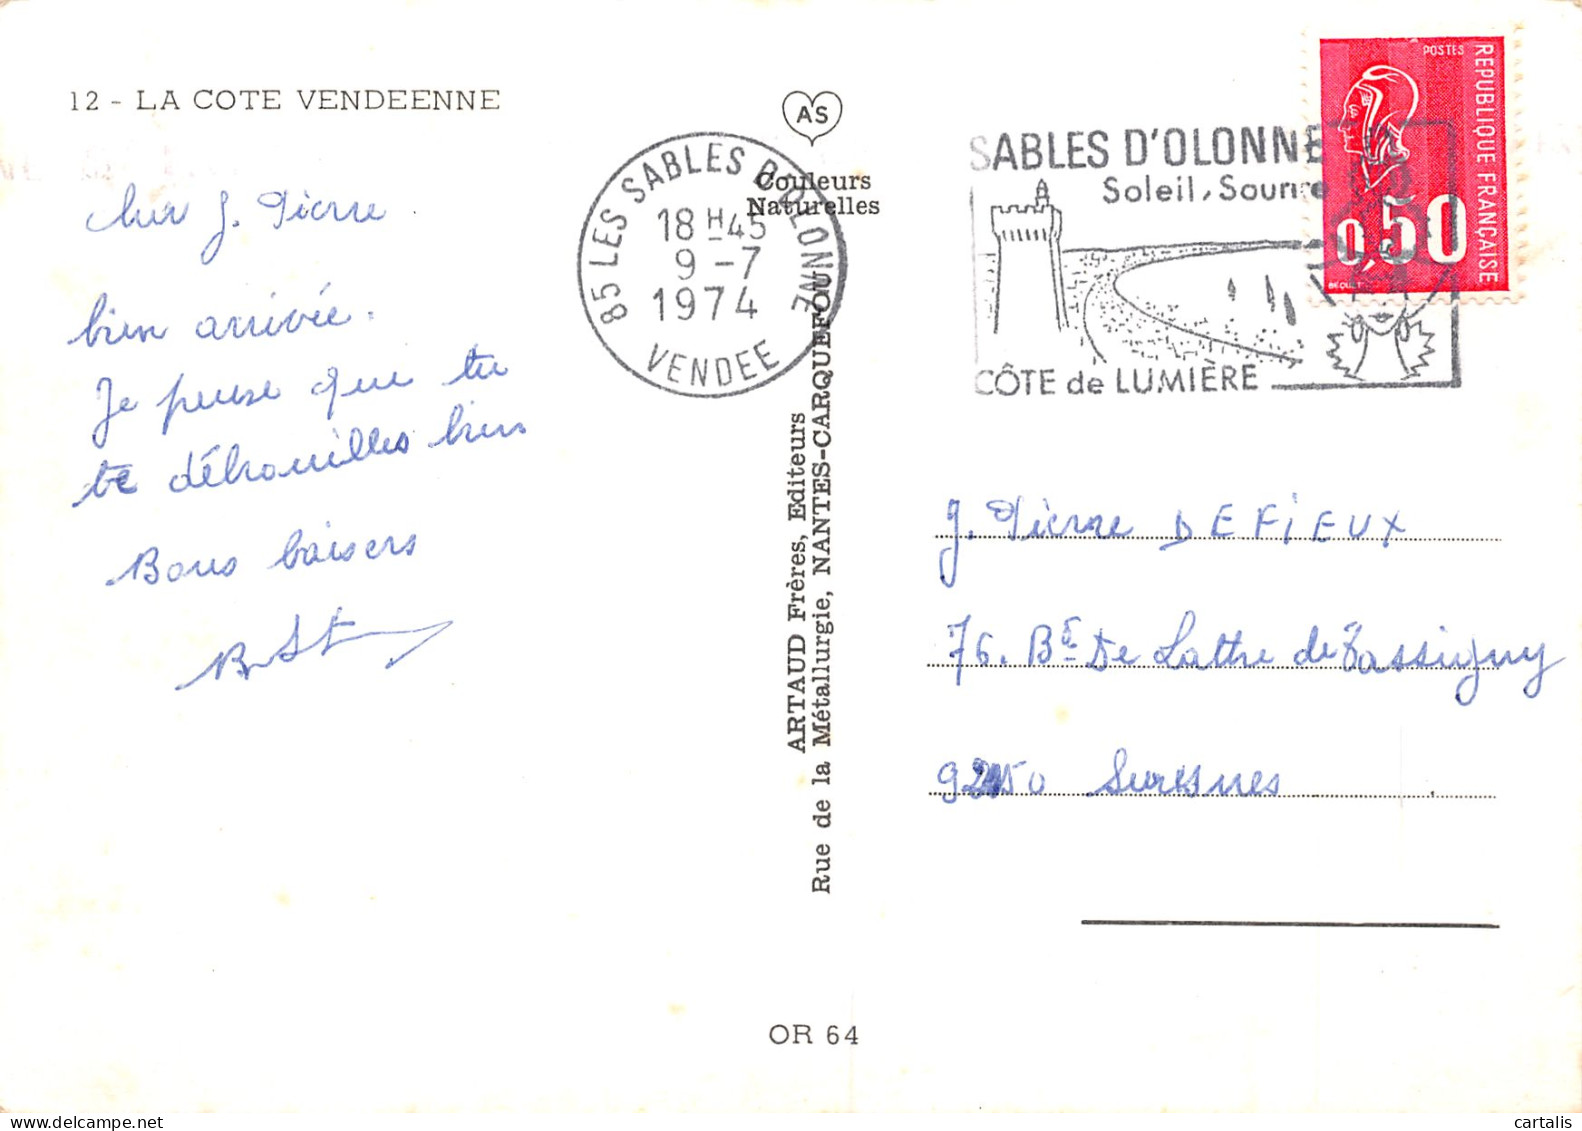 12 - LA COTE VENDEENNE
AS
Couleurs
Naturelles
85 LES SABLES D'OLONNE
18 H 45
9 - 7
1974
VENDEE
SABLES D'OLONNE
Soleil, Sourire
CÔTE de LUMIÈRE
POSTES
REPUBLIQUE FRANÇAISE
0,50
BEQUET
cher J. Pierre
bien arrivée.
Je pense que tu
te débrouilles bien
Bons baisers
ARTAUD Frères, Editeurs
Rue de la Métallurgie, NANTES-CARQUEFOU
J. Pierre DEFiEUX
76. Bd De Lattre de Tassigny
92150 Suresnes
OR 64
cartalis